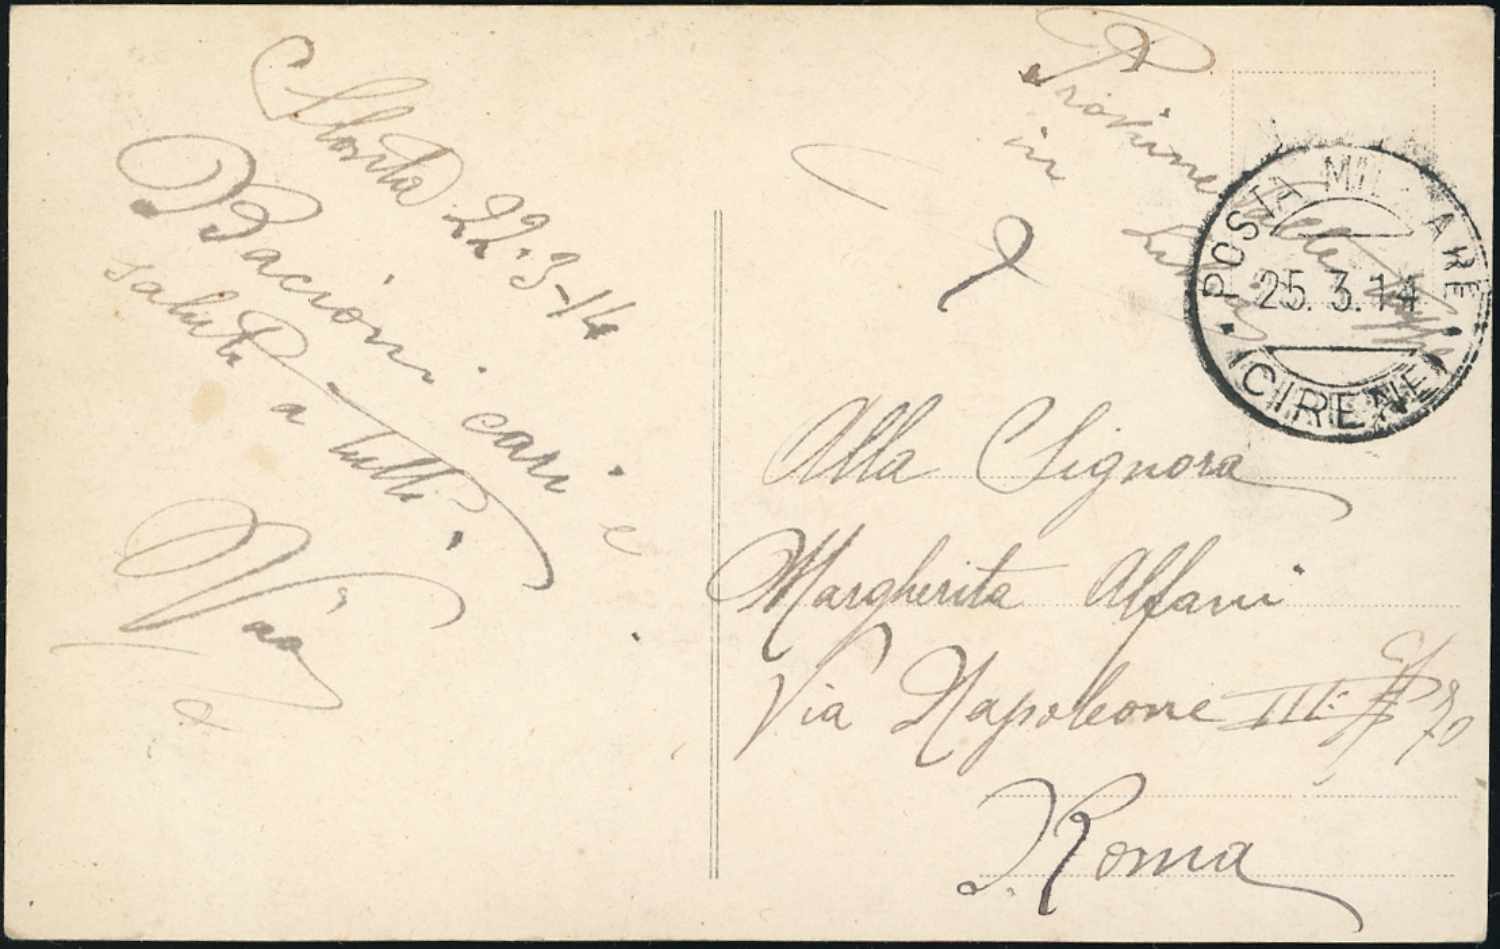 Slonta 22-3-14
Bacioni cari e
saluti a tutti
in
Alla Signora
Margherita Alfani
Via Napoleone III: 70
Roma
POSTA MILITARE
25.3.14
CIRENE